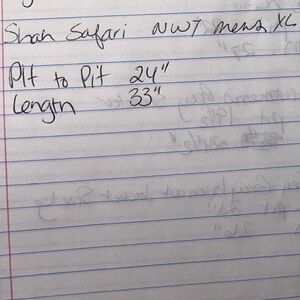 Shah Safari NWT mens XL
Pit to Pit 24"
Length 33"